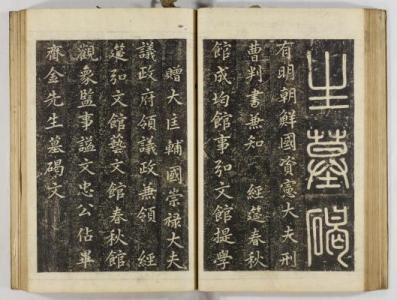 生墓碣
有明朝鮮國資憲大夫刑
曹判書兼知 經筵春秋
館成均館事弘文館提學
贈大匡輔國崇禄大夫
議政府領議政兼領 經
筵弘文館藝文館春秋館
觀象監事謚文忠公佔畢
齋金先生墓碣文